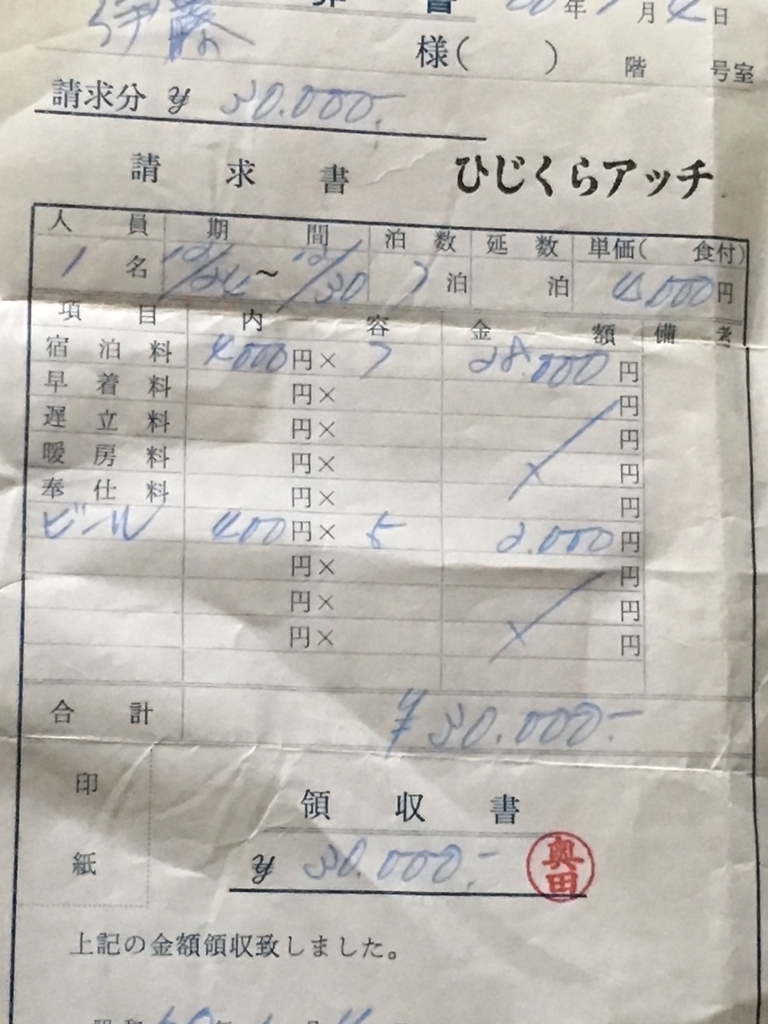 書 年 月 4 日
伊藤 様( ) 階 号室
請求分 ¥ 30.000.
請求書 ひじくらアッチ
人員 期間 泊数 延数 単価( 食付)
1名 12/24〜12/30 7泊 泊 4000円
項目 内容 金額 備考
宿泊料 4000円× 7 28.000円
早着料 円× 円
遅立料 円× 円
暖房料 円× 円
奉仕料 円× 円
ビール 400円× 5 2.000円
円× 円
円× 円
円× 円
合計 ¥30.000.-
印紙 領収書
¥ 30.000.- 奥田
上記の金額領収致しました。